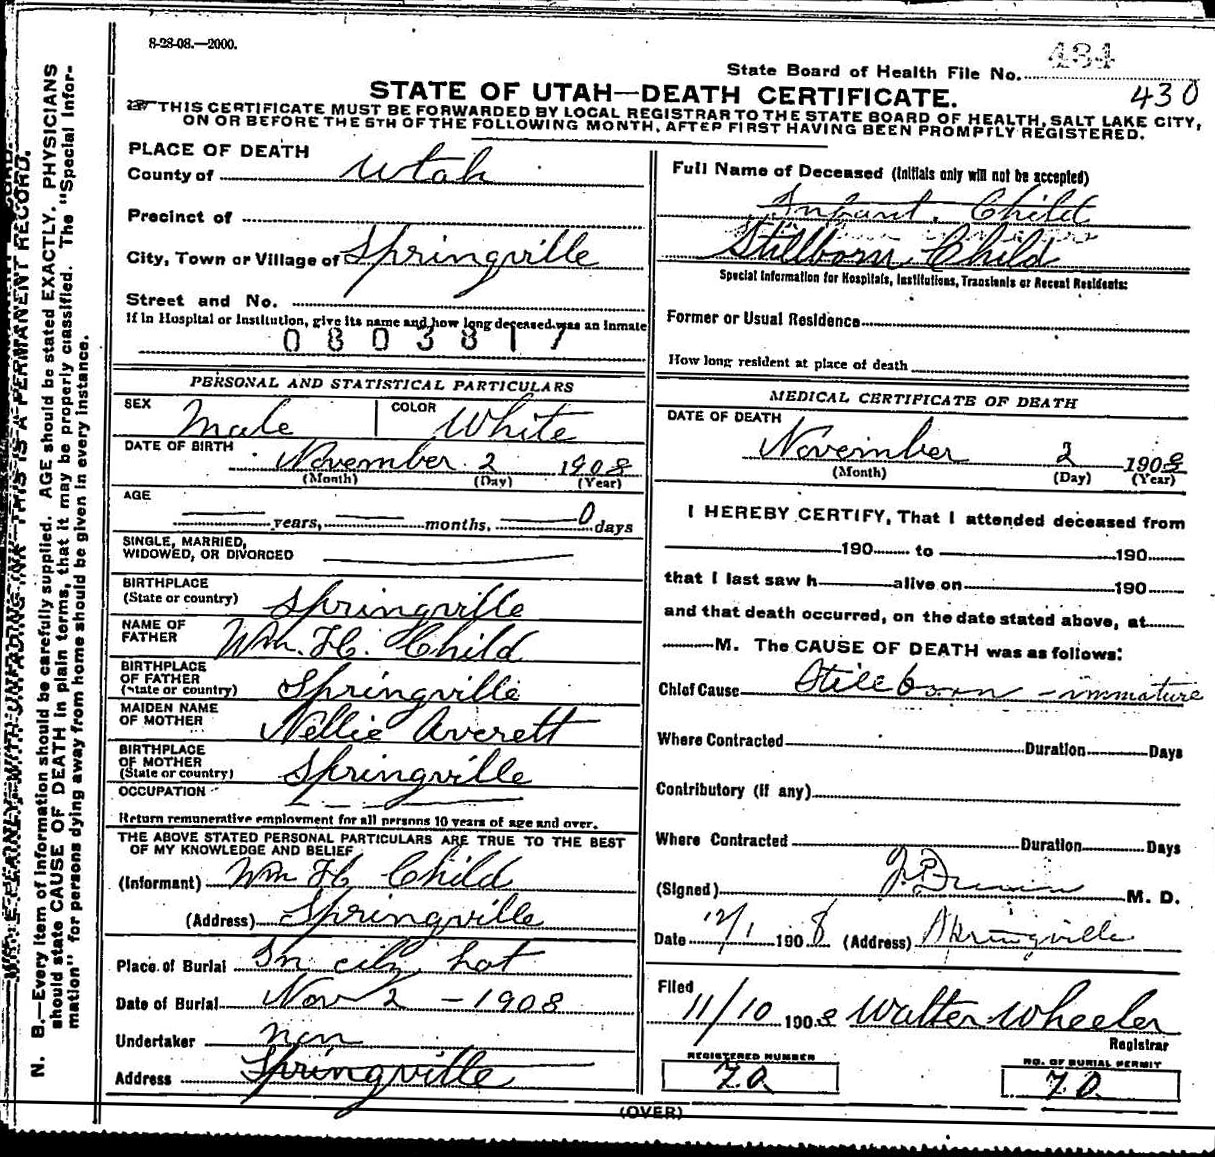 8-28-08.—2000.
434
State Board of Health File No.
430
STATE OF UTAH—DEATH CERTIFICATE.
THIS CERTIFICATE MUST BE FORWARDED BY LOCAL REGISTRAR TO THE STATE BOARD OF HEALTH, SALT LAKE CITY,
ON OR BEFORE THE 5TH OF THE FOLLOWING MONTH, AFTER FIRST HAVING BEEN PROMPTLY REGISTERED.
PLACE OF DEATH
County of Utah
Precinct of
City, Town or Village of Springville
Street and No.
If in Hospital or Institution, give its name and how long deceased was an inmate
0803817
PERSONAL AND STATISTICAL PARTICULARS
SEX Male COLOR White
DATE OF BIRTH November 2 1908
(Month) (Day) (Year)
AGE
years, months, 0 days
SINGLE, MARRIED,
WIDOWED, OR DIVORCED
BIRTHPLACE
(State or country) Springville
NAME OF
FATHER Wm. H. Child
BIRTHPLACE
OF FATHER
(State or country) Springville
MAIDEN NAME
OF MOTHER Nellie Averett
BIRTHPLACE
OF MOTHER
(State or country) Springville
OCCUPATION
Return remunerative employment for all persons 10 years of age and over.
THE ABOVE STATED PERSONAL PARTICULARS ARE TRUE TO THE BEST
OF MY KNOWLEDGE AND BELIEF
(Informant) Wm H Child
(Address) Springville
Place of Burial In city lot
Date of Burial Nov 2 - 1908
Undertaker non
Address Springville
Full Name of Deceased (Initials only will not be accepted)
Infant Child
Stillborn Child
Special Information for Hospitals, Institutions, Transients or Recent Residents:
Former or Usual Residence
How long resident at place of death
MEDICAL CERTIFICATE OF DEATH
DATE OF DEATH
November 2 1908
(Month) (Day) (Year)
I HEREBY CERTIFY, That I attended deceased from
190 to 190
that I last saw h alive on 190
and that death occurred, on the date stated above, at
M. The CAUSE OF DEATH was as follows:
Chief Cause Stillborn - immature
Where Contracted Duration Days
Contributory (if any)
Where Contracted Duration Days
(Signed) M. D.
Date 12/1 1908 (Address) Springville
Filed
11/10 1908 Walter Wheeler
Registrar
REGISTERED NUMBER
70
NO. OF BURIAL PERMIT
70
(OVER)
WRITE PLAINLY WITH UNFADING INK—THIS IS A PERMANENT RECORD.
N. B.—Every item of information should be carefully supplied. AGE should be stated EXACTLY. PHYSICIANS
should state CAUSE OF DEATH in plain terms, that it may be properly classified. The "Special Infor-
mation" for persons dying away from home should be given in every instance.